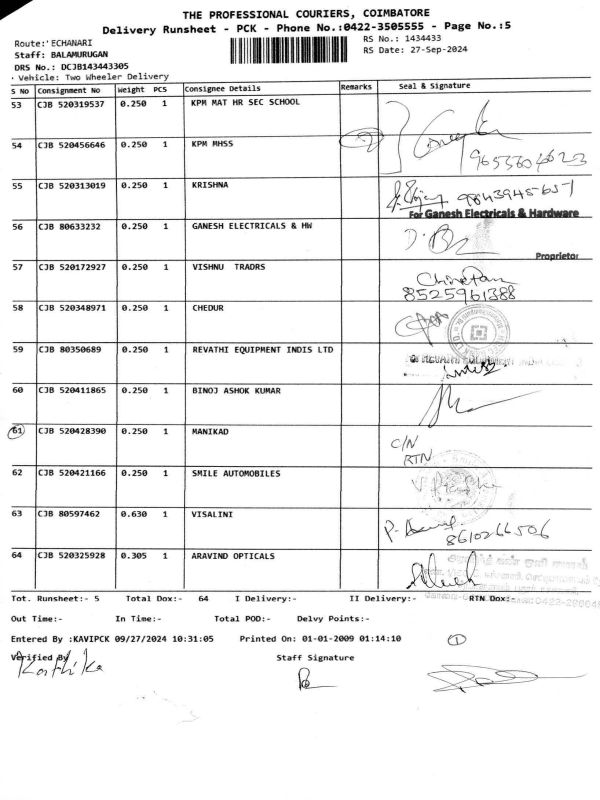 THE PROFESSIONAL COURIERS, COIMBATORE
Delivery Runsheet - PCK - Phone No.:0422-3505555 - Page No.:5
Route:'ECHANARI
RS No.: 1434433
Staff: BALAMURUGAN
RS Date: 27-Sep-2024
DRS No.: DCJB143443305
Vehicle: Two Wheeler Delivery
S No Consignment No Weight PCS Consignee Details Remarks Seal & Signature
53 CJB 520319537 0.250 1 KPM MAT HR SEC SCHOOL
54 CJB 520456646 0.250 1 KPM MHSS
55 CJB 520313019 0.250 1 KRISHNA 9843945651
For Ganesh Electricals & Hardware
56 CJB 80633232 0.250 1 GANESH ELECTRICALS & HW
Proprietor
57 CJB 520172927 0.250 1 VISHNU TRADRS
8525961388
58 CJB 520348971 0.250 1 CHEDUR
59 CJB 80350689 0.250 1 REVATHI EQUIPMENT INDIS LTD
60 CJB 520411865 0.250 1 BINOJ ASHOK KUMAR
61 CJB 520428390 0.250 1 MANIKAD C/N
RTN
62 CJB 520421166 0.250 1 SMILE AUTOMOBILES
63 CJB 80597462 0.630 1 VISALINI
8610266506
64 CJB 520325928 0.305 1 ARAVIND OPTICALS
Tot. Runsheet:- 5 Total Dox:- 64 I Delivery:- II Delivery:- RTN Dox:-
Out Time:- In Time:- Total POD:- Delvy Points:-
Entered By :KAVIPCK 09/27/2024 10:31:05 Printed On: 01-01-2009 01:14:10 1
Verified By Staff Signature
Karthika